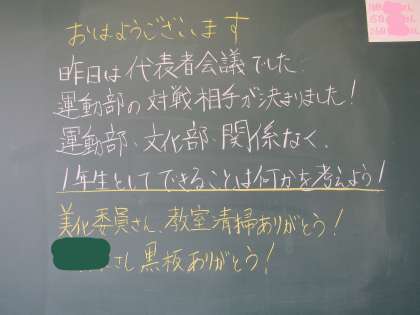 おはようございます
昨日は代表者会議でした.
運動部の対戦相手が決まりました!
運動部、文化部、関係なく、
1年生としてできることは何かを考えよう!
美化委員さん、教室清掃ありがとう!
さん黒板ありがとう!